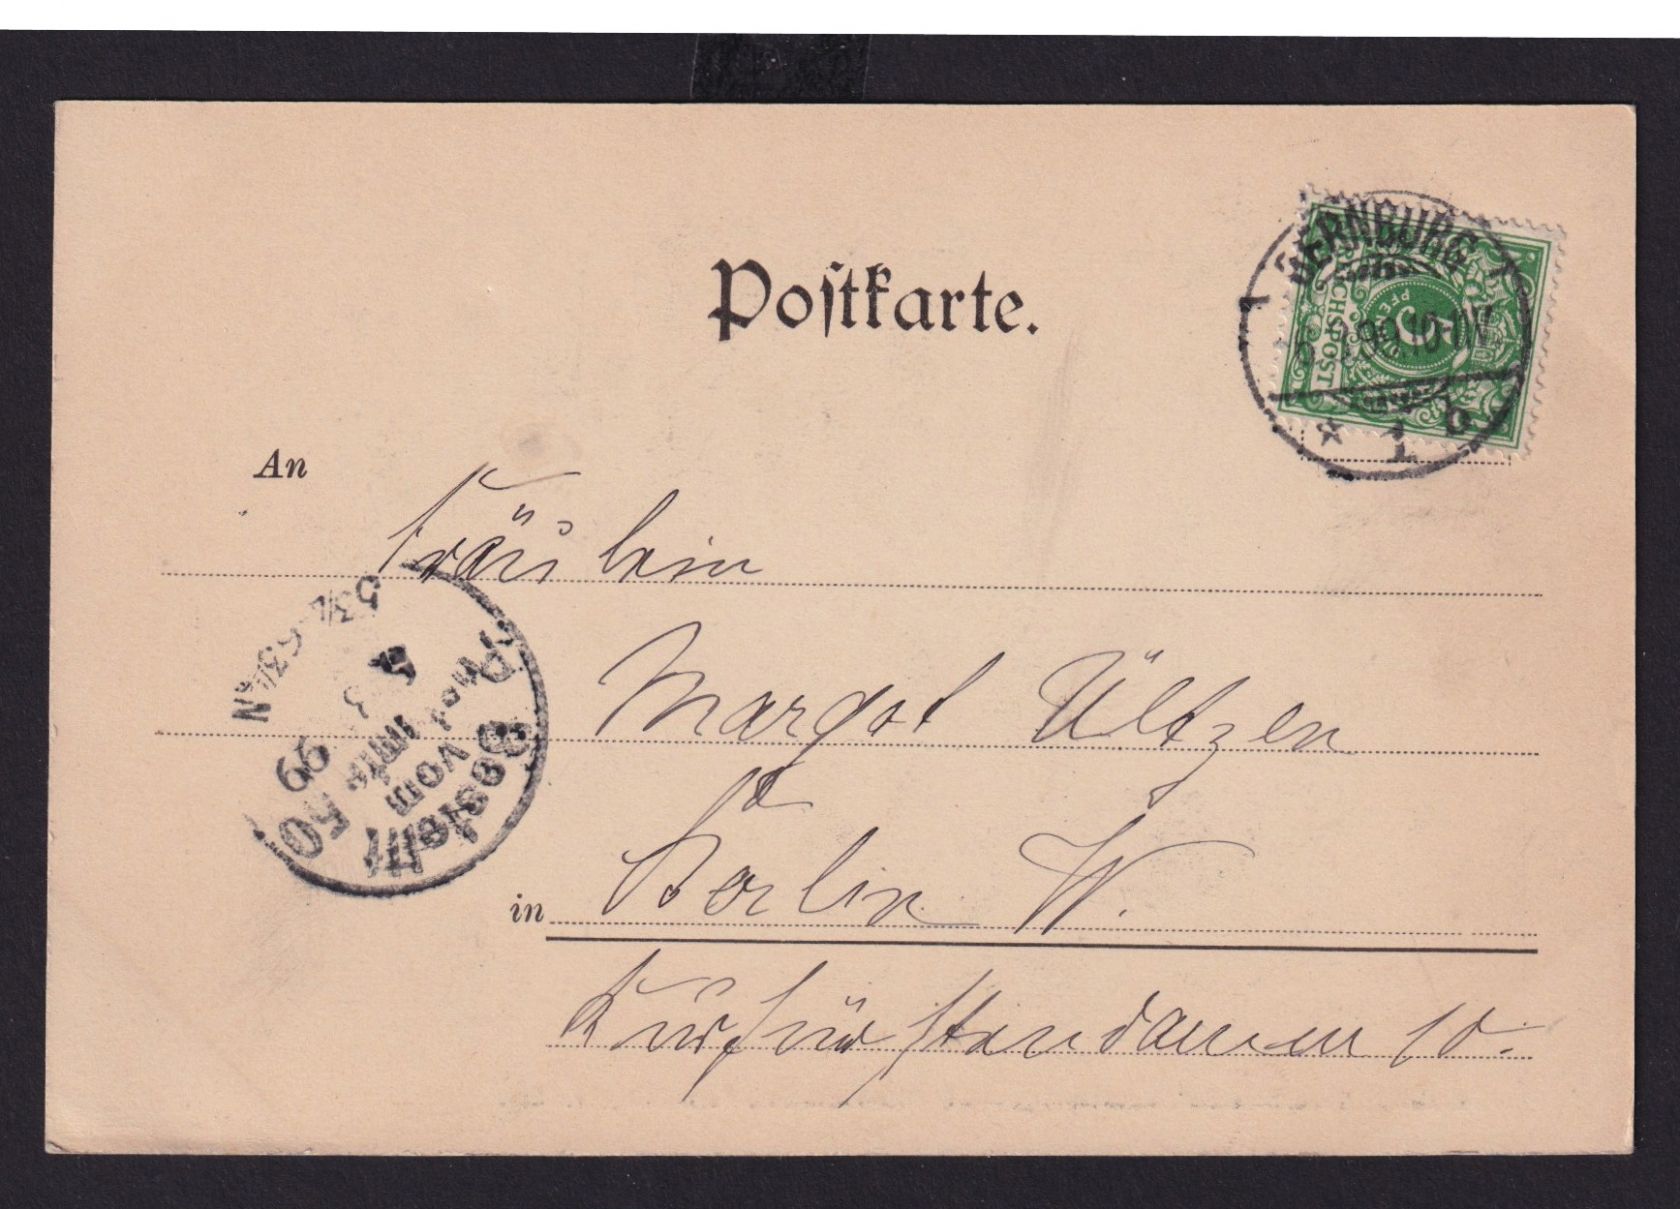 Postkarte.
BERNBURG
REICHSPOST
5
PFENNIG
* 1 b
An
Fräulein
Margot Ültzen
in Berlin W.
Kurfürstendamm 10.
Bestellt
vom
Postamte
50
99
5¾-6¾N